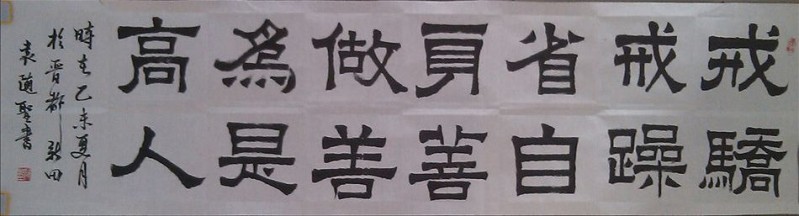 戒驕
戒躁
省自
身善
做善
為是
高人
時在乙未夏月
於晋都新田
袁随聖書